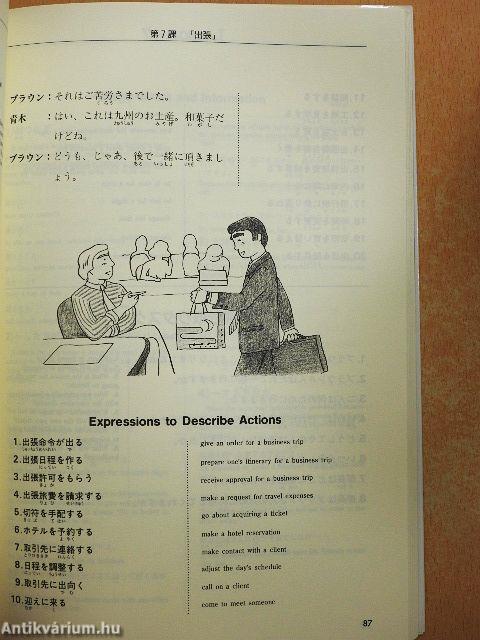 第7課 「出張」
ブラウン：それはご苦労さまでした。
くろう
青木 ：はい、これは九州のお土産。和菓子だ
きゅうしゅう みやげ わがし
けどね。
ブラウン：どうも、じゃあ、後で一緒に頂きまし
あと いっしょ いただ
ょう。
Expressions to Describe Actions
1.出張命令が出る give an order for a business trip
2.出張日程を作る prepare one's itinerary for a business trip
3.出張許可をもらう receive approval for a business trip
4.出張旅費を請求する make a request for travel expenses
5.切符を手配する go about acquiring a ticket
6.ホテルを予約する make a hotel reservation
7.取引先に連絡する make contact with a client
8.日程を調整する adjust the day's schedule
9.取引先に出向く call on a client
10.迎えに来る come to meet someone
87
Antikvárium.hu